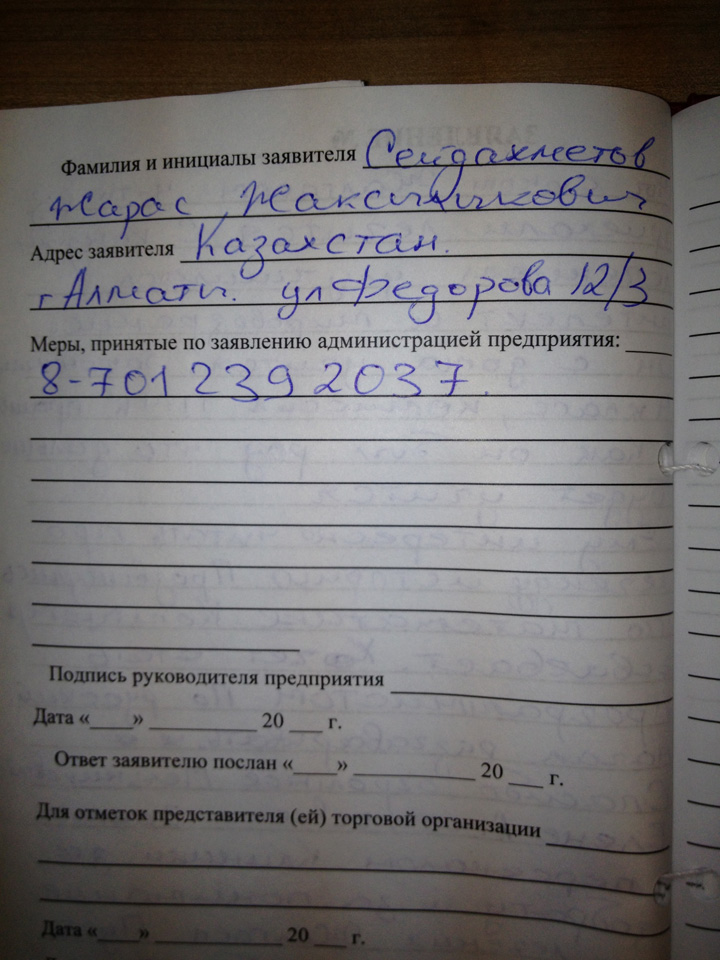 Фамилия и инициалы заявителя Сейдахметов
Жарас Жаксыликович
Адрес заявителя Казахстан.
г Алматы. ул Федорова 12/3
Меры, принятые по заявлению администрацией предприятия:
8-701 239 2037.
Подпись руководителя предприятия
Дата «____» ____________ 20 ___ г.
Ответ заявителю послан «____» ____________ 20 ___ г.
Для отметок представителя (ей) торговой организации
Дата «____» ____________ 20 ___ г.